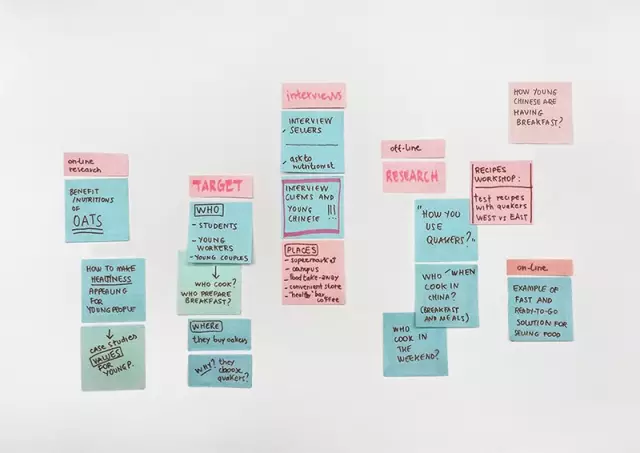 on-line
research
BENEFIT
/NUTRITIONS
OF
OATS
HOW TO MAKE
HEALTINESS
APPEALING
FOR
YOUNG PEOPLE
case studies
VALUES
FOR
YOUNG P.
TARGET
WHO
- STUDENTS
- YOUNG
WORKERS
- YOUNG COUPLES
WHO COOK?
WHO PREPARE
BREAKFAST?
WHERE
they buy oakers
WHY? they
choose
quakers?
interviews
INTERVIEW
SELLERS
ask to
nutritionist
INTERVIEW
AND
YOUNG
CHINESE !!!
PLACES
- supermarket
- campus
- food take-away
- convenient store
- "healthy" bar
coffee
off-line
RESEARCH
"HOW YOU
USE
QUAKERS?"
WHO/WHEN
COOK IN
CHINA?
(BREAKFAST
AND MEALS)
WHO
COOK IN
THE
WEEKEND?
RECIPES
WORKSHOP:
test recipes
with quakers
WEST VS EAST
HOW YOUNG
CHINESE ARE
HAVING
BREAKFAST?
on-line
EXAMPLE OF
FAST AND
READY-TO-GO
SOLUTION FOR
SELLING FOOD